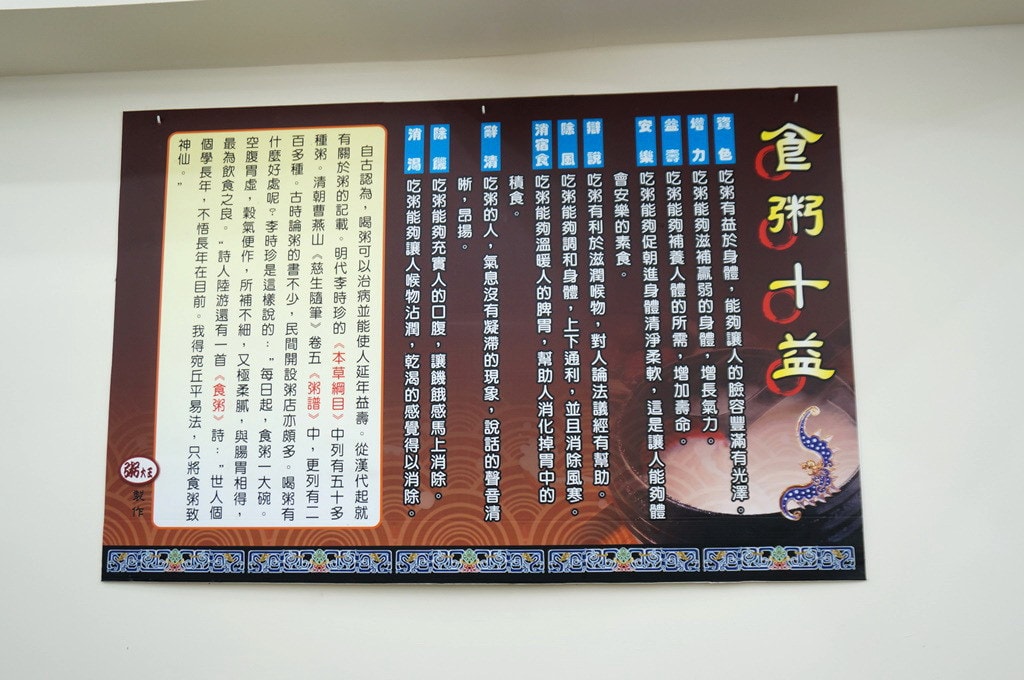 食粥十益
資色 吃粥有益於身體，能夠讓人的臉容豐滿有光澤。
增力 吃粥能夠滋補羸弱的身體，增長氣力。
益壽 吃粥能夠補養人體的所需，增加壽命。
安樂 吃粥能夠促朝進身體清淨柔軟，這是讓人能夠體
會安樂的素食。
辯說 吃粥有利於滋潤喉物，對人論法議經有幫助。
除風 吃粥能夠調和身體，上下通利，並且消除風寒。
消宿食 吃粥能夠溫暖人的脾胃，幫助人消化掉胃中的
積食。
辭清 吃粥的人，氣息沒有凝滯的現象，說話的聲音清
晰，昂揚。
除饑 吃粥能夠充實人的口腹，讓饑餓感馬上消除。
消渴 吃粥能夠讓人喉物沾潤，乾渴的感覺得以消除。
自古認為，喝粥可以治病並能使人延年益壽。從漢代起就
有關於粥的記載。明代李時珍的《本草綱目》中列有五十多
種粥。清朝曹燕山《慈生隨筆》卷五《粥譜》中，更列有二
百多種。古時論粥的書不少，民間開設粥店亦頗多。喝粥有
什麼好處呢？李時珍是這樣說的："每日起，食粥一大碗。
空腹胃虛，穀氣便作，所補不細，又極柔膩，與腸胃相得，
最為飲食之良。"詩人陸游還有一首《食粥》詩："世人個
個學長年，不悟長年在目前。我得宛丘平易法，只將食粥致
神仙。"
粥大王
製作